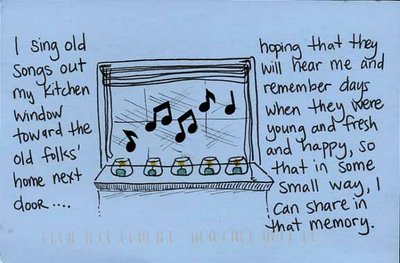 I sing old
songs out
my kitchen
window
toward the
old folks'
home next
door....
hoping that they
will hear me and
remember days
when they were
young and fresh
and happy, so
that in some
small way, I
can share in
that memory.